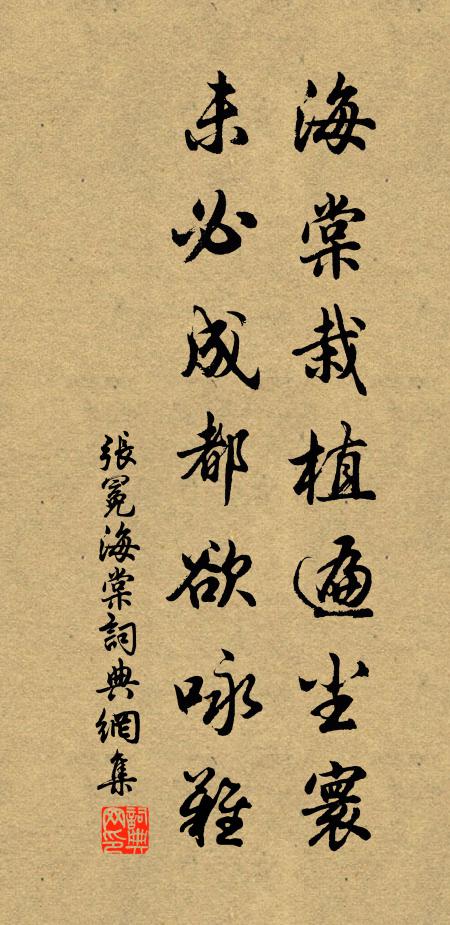 海棠栽植遍尘寰
未必成都欲咏難
張冕海棠詞典網集
詞典网印